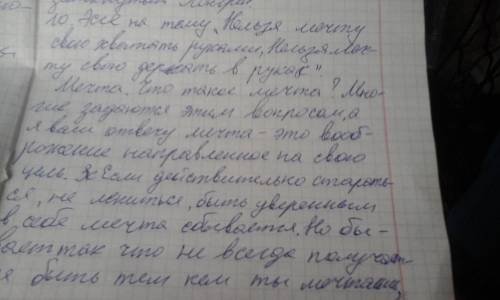 10. Эссе на тему „Нельзя мечту
свою хватать руками, Нельзя меч-
ту свою держать в руках"
Мечта. Что такое мечта? Мно-
гие задаются этим вопросом, а
я вам отвечу мечта - это вооб-
рожение направленное на свою
цель. Если действительно старать-
ся, не лениться, быть уверенным
в себе мечта сбывается. Но бы-
вает так что не всегда получает-
ся быть тем кем ты мечтаешь,